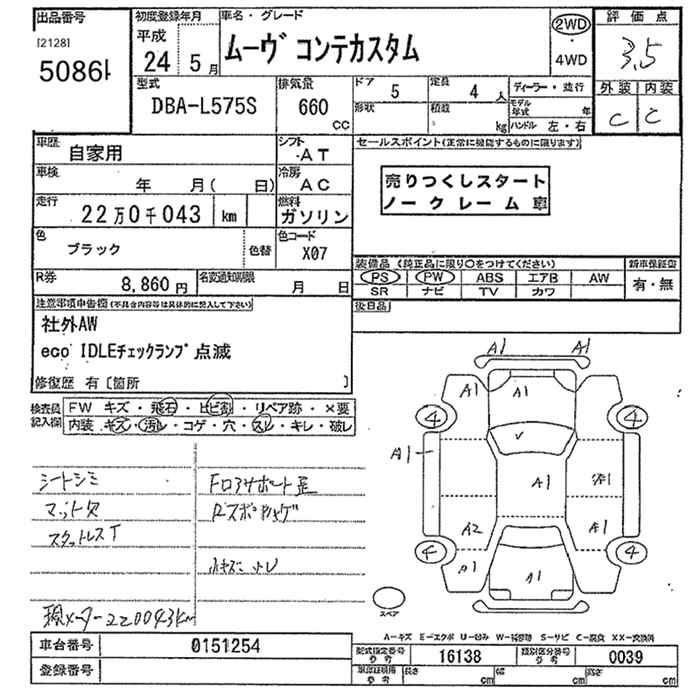 出品番号
[2128]
5086
初度登録年月
平成
24 5月
車名・グレード
ムーヴ コンテカスタム
2WD
・
4WD
評価点
3.5
外装 内装
C C
型式
DBA-L575S
排気量
660
CC
ドア 5
形状
定員 4人
積載 kg
ディーラー・並行
モデル年式 年
ハンドル 左・右
車歴
自家用
シフト
AT
車検
年 月( 日)
冷房
AC
走行
22万0千043 km
燃料
ガソリン
色
ブラック
色替
色コード
X07
R券
8,860円
名変通知期限
月 日
セールスポイント(正常に機能するものに限ります)
売りつくしスタート
ノークレーム車
装備品 (純正品に限り○をつけてください)
PS PW ABS エアB AW
SR ナビ TV カワ
新車保証書
有・無
後日品
注意事項申告欄(不具合内容等は具体的に記入して下さい)
社外AW
eco IDLEチェックランプ点滅
修復歴 有〔箇所 〕
検査員
記入欄
FW キズ・飛石・ヒビ割・リペア跡・×要
内装・キズ・汚れ・コゲ・穴・スレ・キレ・破レ
シートシミ
マット欠
スタットレスT
Fロアサポート歪
小キズミトレ
現メーター220043km
A1 A1
A1 A1
4 4
A1 A1
A2 A1
A1 A1
スペア
A-キズ E-エクボ U-凹み W-補修跡 S-サビ C-腐食 XX-交換済
車台番号
0151254
登録番号
型式指定番号
参考
16138
類別区分番号
参考
0039
長さ cm
幅 cm
高さ cm